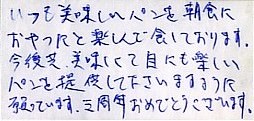 いつも美味しいパンを朝食に
おやつにと楽しんで食しております。
今後共、美味しくて目にも楽しい
パンを提供して下さいますように
願っています。三周年おめでとうございます。